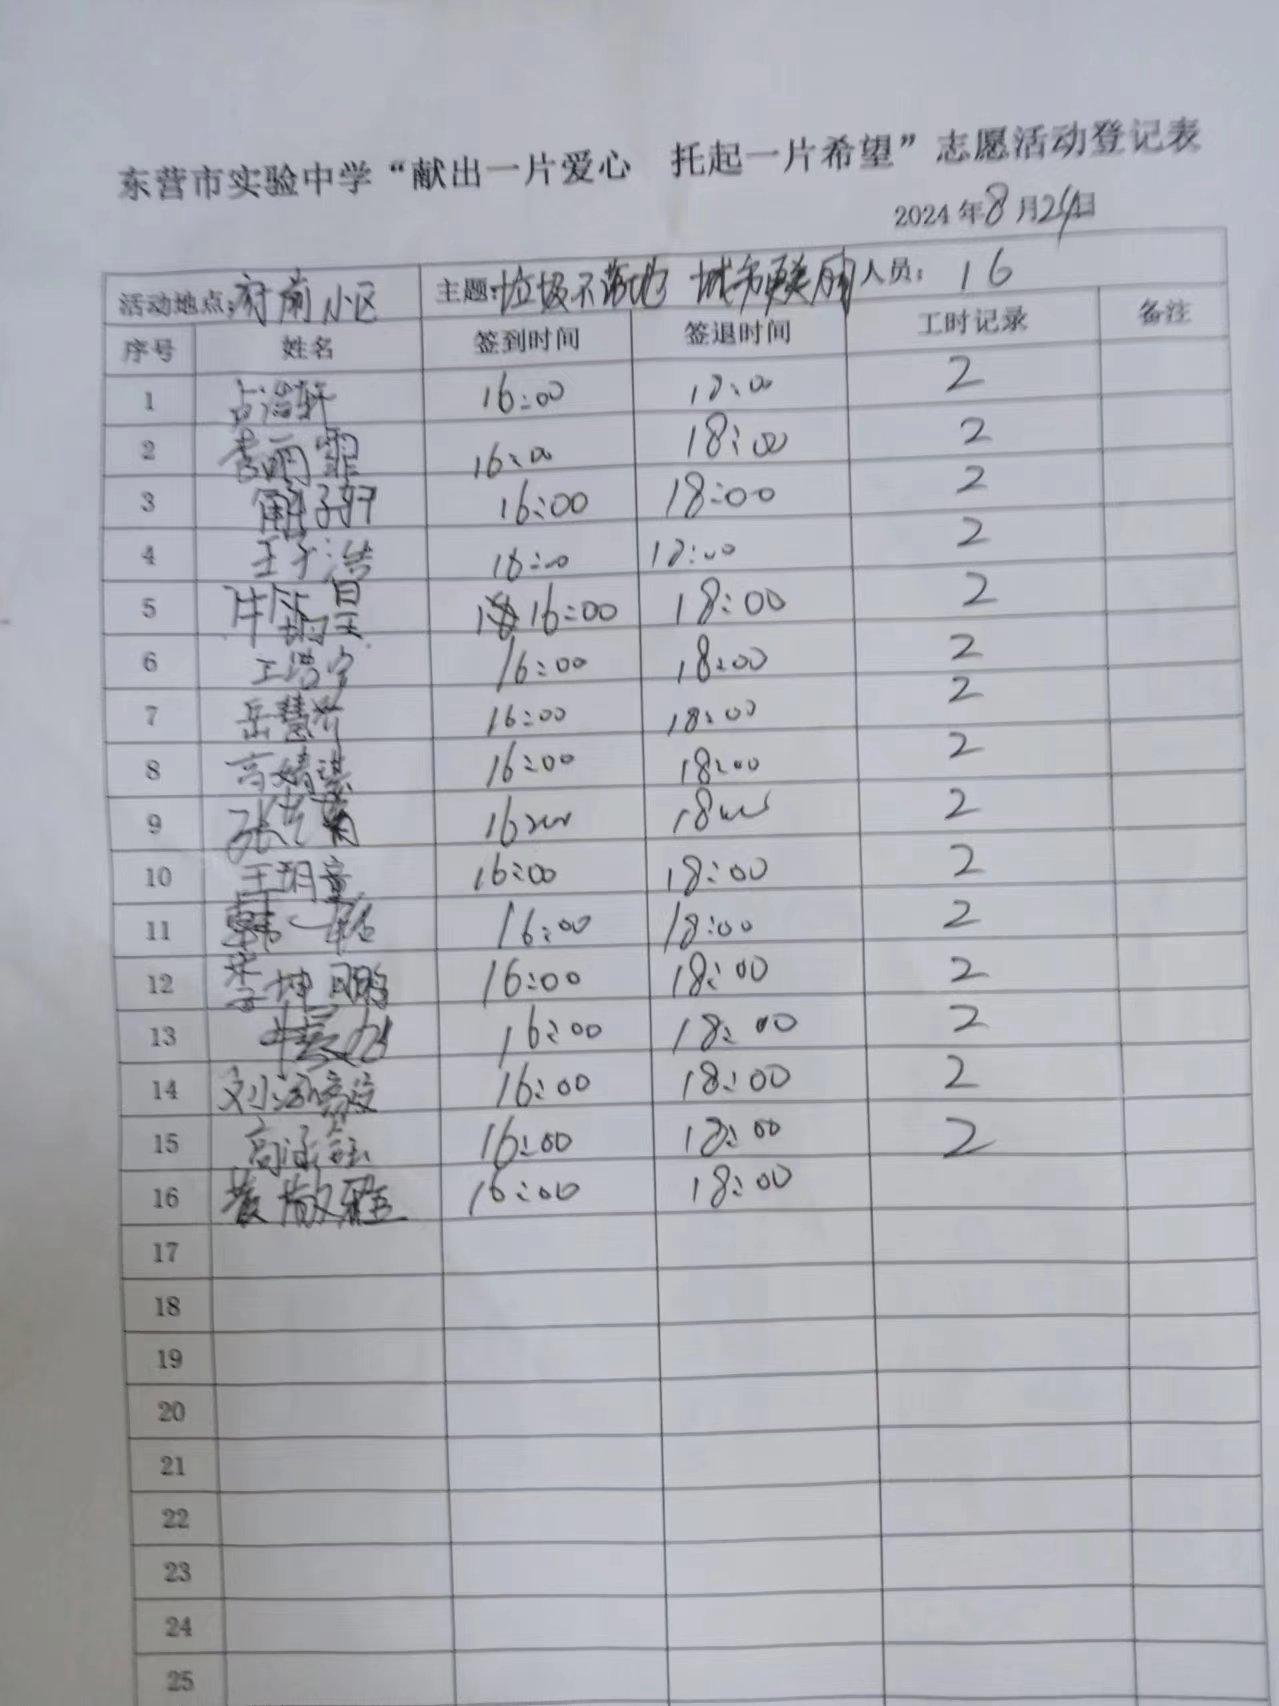 东营市实验中学“献出一片爱心 托起一片希望”志愿活动登记表
2024年8月24日
活动地点:府前小区 主题:垃圾不落地 城市更美丽 人员:16
序号 姓名 签到时间 签退时间 工时记录 备注
1 占浩轩 16:00 18:00 2
2 雨霏 16:00 18:00 2
3 解子妍 16:00 18:00 2
4 王子浩 18:00 18:00 2
5 16:00 18:00 2
6 王浩宇 16:00 18:00 2
7 岳慧 16:00 18:00 2
8 高婧琪 16:00 18:00 2
9 张 16:00 18:00 2
10 王玥童 16:00 18:00 2
11 韩一 16:00 18:00 2
12 李坤鹏 16:00 18:00 2
13 16:00 18:00 2
14 刘 16:00 18:00 2
15 高涵钰 16:00 18:00 2
16 黄 16:00 18:00
17
18
19
20
21
22
23
24
25